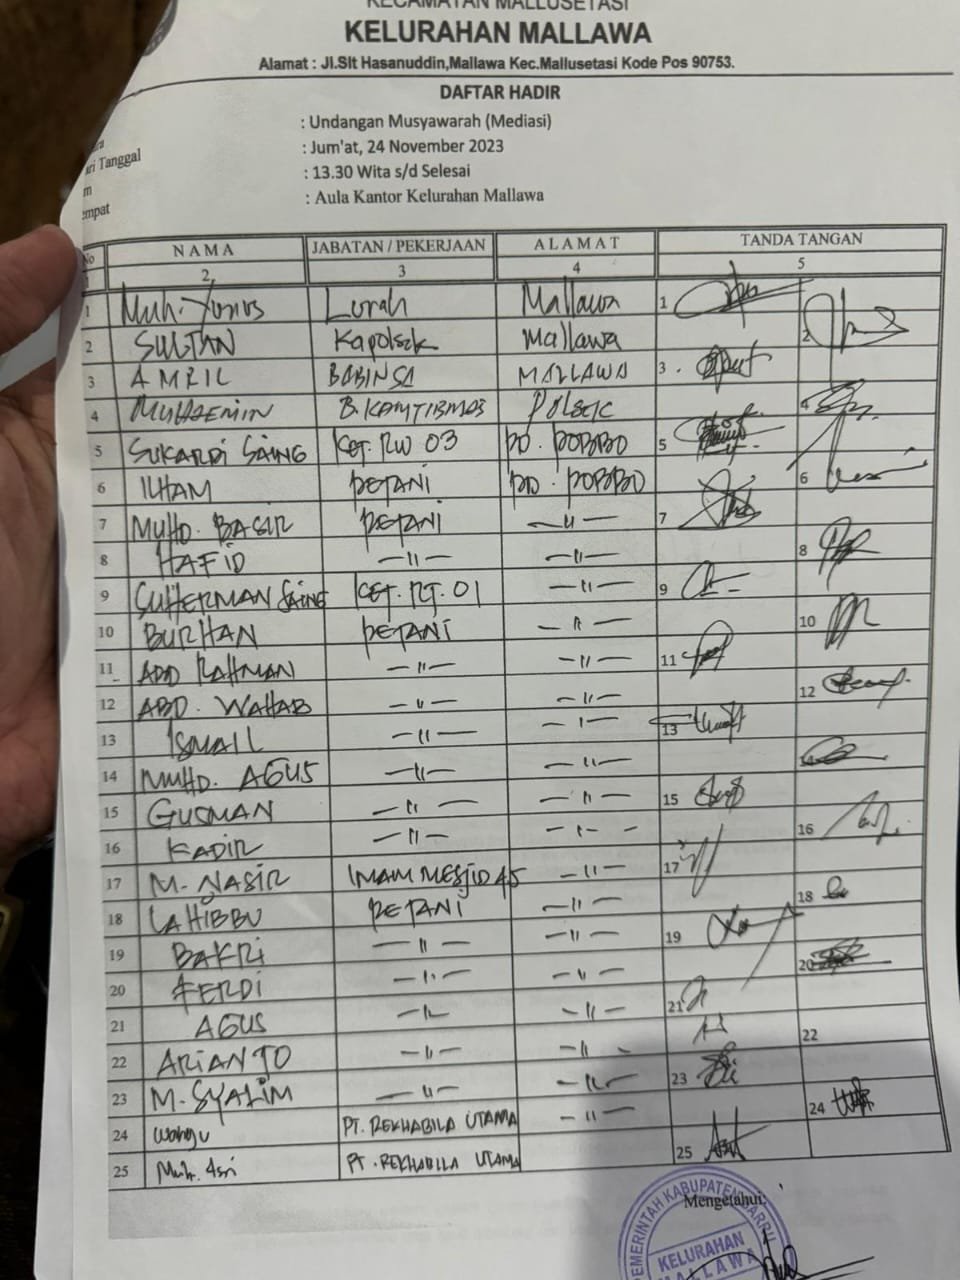 KECAMATAN MALLUSETASI
KELURAHAN MALLAWA
Alamat : Jl.Slt Hasanuddin,Mallawa Kec.Mallusetasi Kode Pos 90753.
DAFTAR HADIR
: Undangan Musyawarah (Mediasi)
ri Tanggal : Jum'at, 24 November 2023
m : 13.30 Wita s/d Selesai
mpat : Aula Kantor Kelurahan Mallawa
No NAMA JABATAN / PEKERJAAN ALAMAT TANDA TANGAN
1 2 3 4 5
1 Muh. Yunus Lurah Mallawa 1
2 SULTAN Kapolsek Mallawa 2
3 AMRIL BABINSA MALLAWA 3
4 MUHAEMIN B. KAMTIBMAS POLSEK 4
5 SUKARDI SAING KET. RW 03 PD. POBBO 5
6 ILHAM PETANI PD. POBBO 6
7 MUHD. BASIR PETANI —"— 7
8 HAFID —"— —"— 8
9 SUHERMAN SAING KET. RT. 01 —"— 9
10 BURHAN PETANI —"— 10
11 ABD RAHMAN —"— —"— 11
12 ABD. WAHAB —"— —"— 12
13 ISMAIL —"— —"— 13
14 MUHD. AGUS —"— —"— 14
15 GUSMAN —"— —"— 15
16 KADIR —"— —"— 16
17 M. NASIR IMAM MESJID 45 —"— 17
18 LAHIBBU PETANI —"— 18
19 BAKRI —"— —"— 19
20 FERDI —"— —"— 20
21 AGUS —"— —"— 21
22 ARIANTO —"— —"— 22
23 M. SYALIM —"— —"— 23
24 Wahyu PT. REKHABILA UTAMA —"— 24
25 Muh. Asri PT. REKHABILA UTAMA 25
Mengetahui:
PEMERINTAH KABUPATEN BARRU
KELURAHAN
MALLAWA